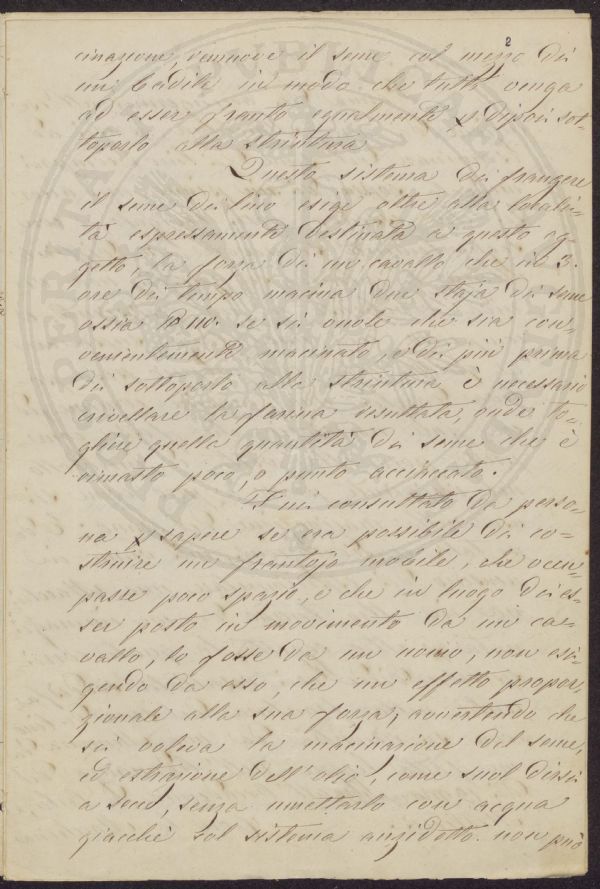 2
cinazione, remuove il seme col mezzo di
un badile in modo che tutto venga
ad esser franto egualmente p dipoi sot-
toporlo alla strintura
Questo sistema di frangere
il seme di lino esige oltre alla locali-
tà espressamente destinata a questo og-
getto, la forza di un cavallo che in 3.
ore di tempo macina due staja di seme
ossia se si vuole che sia con-
venientemente macinato, e di più prima
di sottoporlo alla strintura è necessario
crivellare la farina risultata, onde to-
gliere quella quantità di seme che è
rimasto poco, o punto acciaccato.
Fui consultato da perso-
na p sapere se era possibile di co-
struire un frantojo mobile, che occu-
passe poco spazio, e che in luogo di es-
ser posto in movimento da un ca-
vallo, lo fosse da un uomo, non esi-
gendo da esso, che un effetto propor-
zionale alla sua forza, avvertendo che
si voleva la macinazione del seme,
ed estrazione dell'olio, come suol dirsi
a seco, senza umettarlo con acqua
giacchè sol sistema anzidetto non può